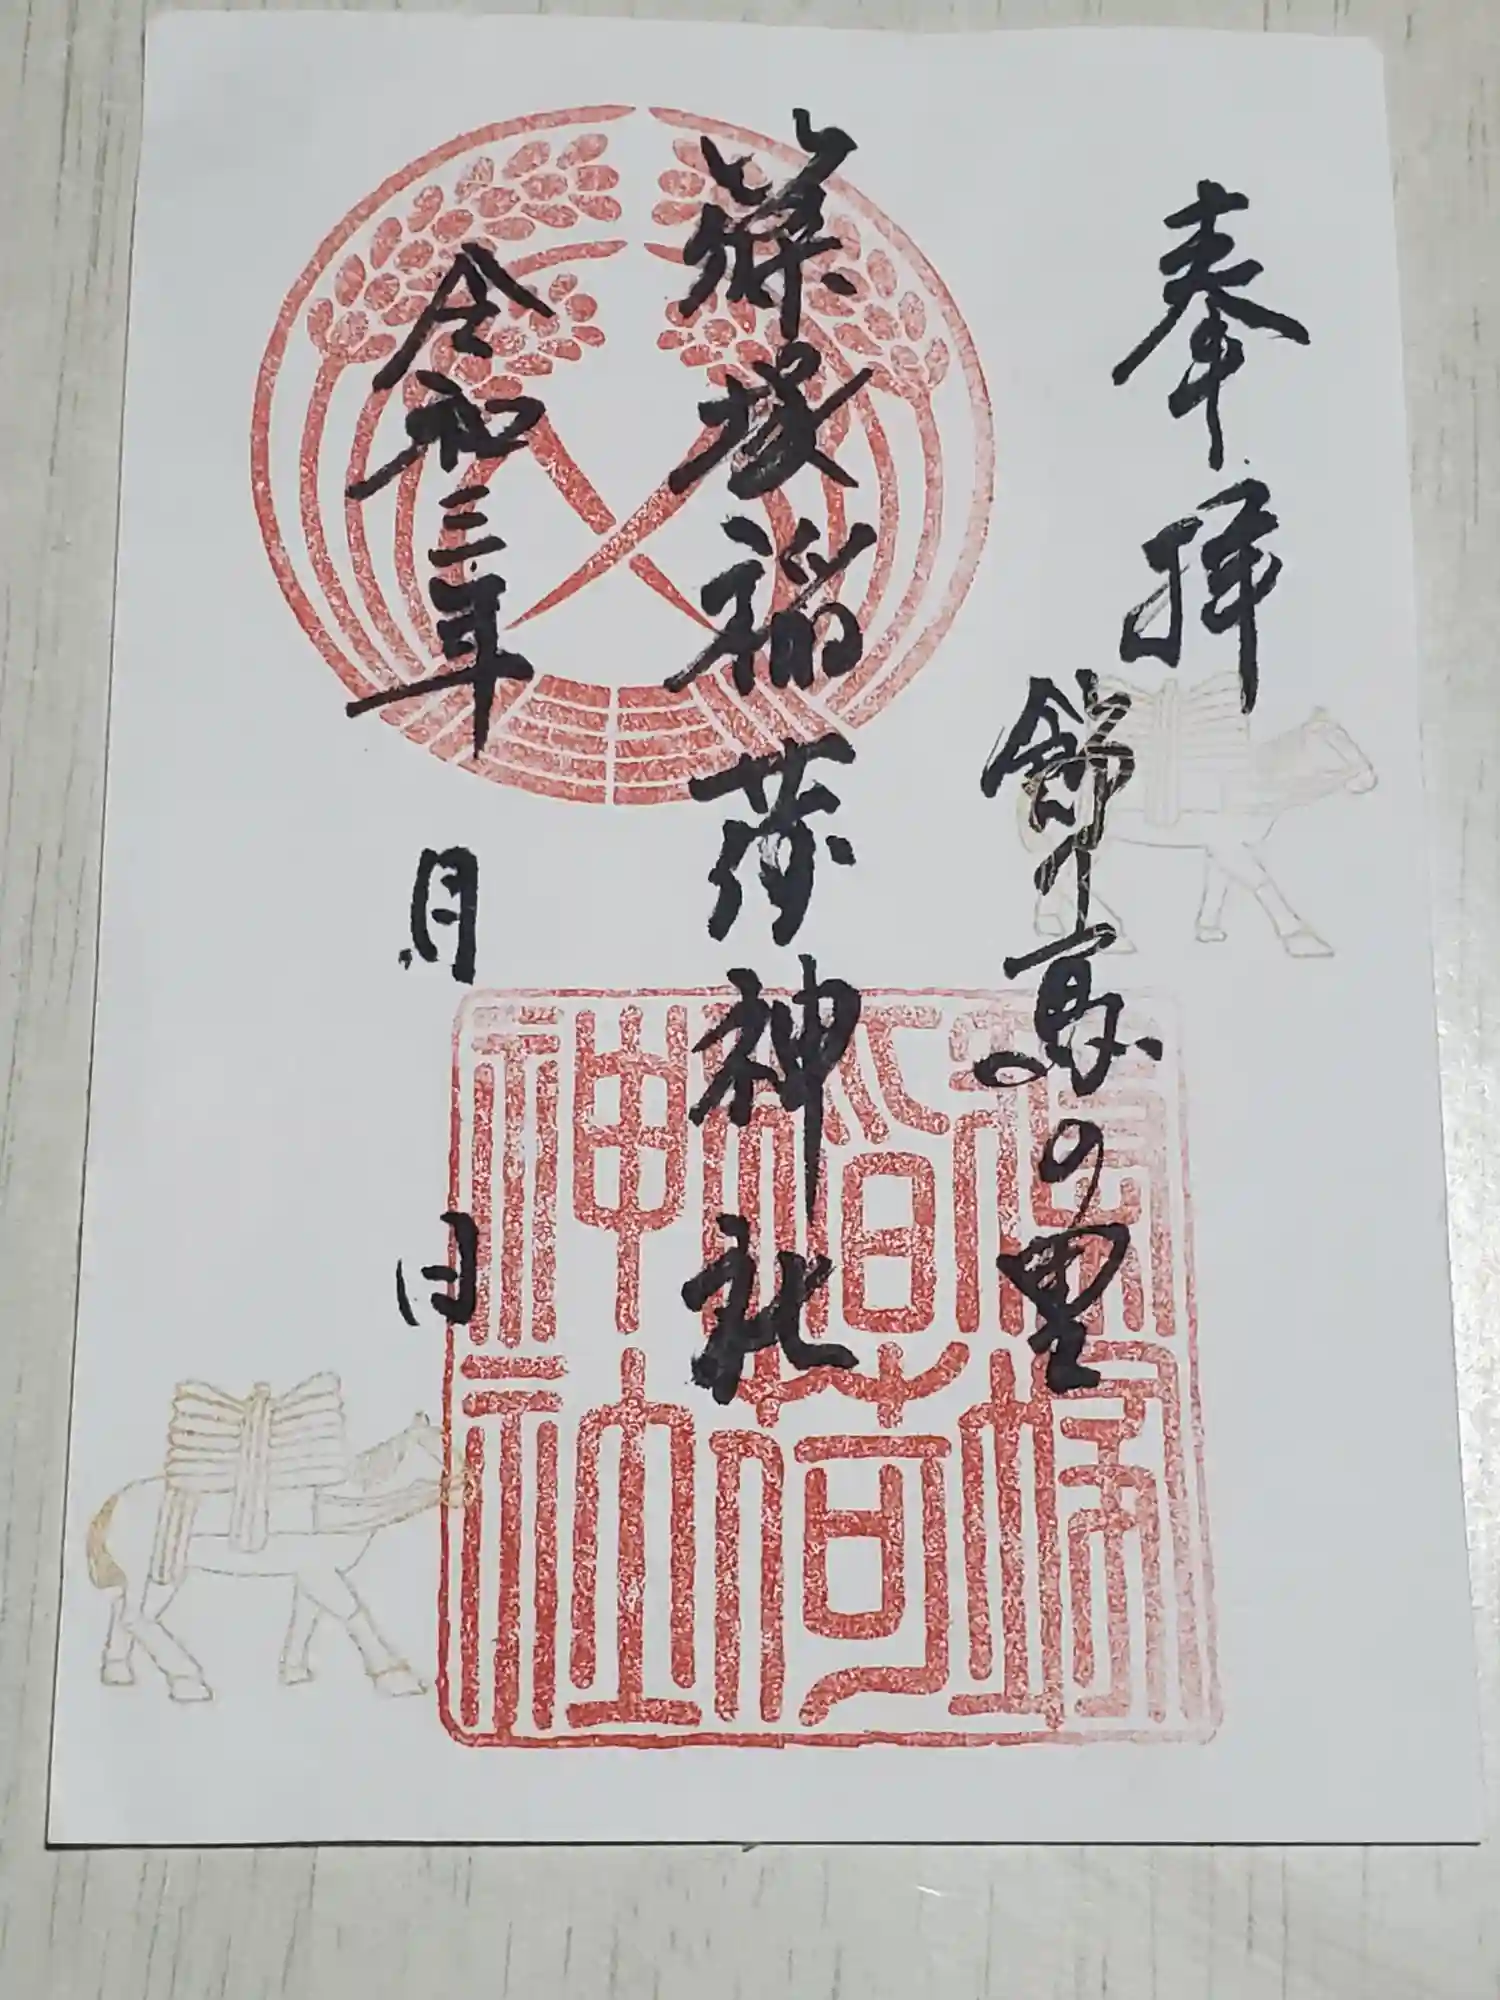 奉拝
飾り馬の里
塚稲荷神社
令和三年 月 日
塚
稲荷
神社